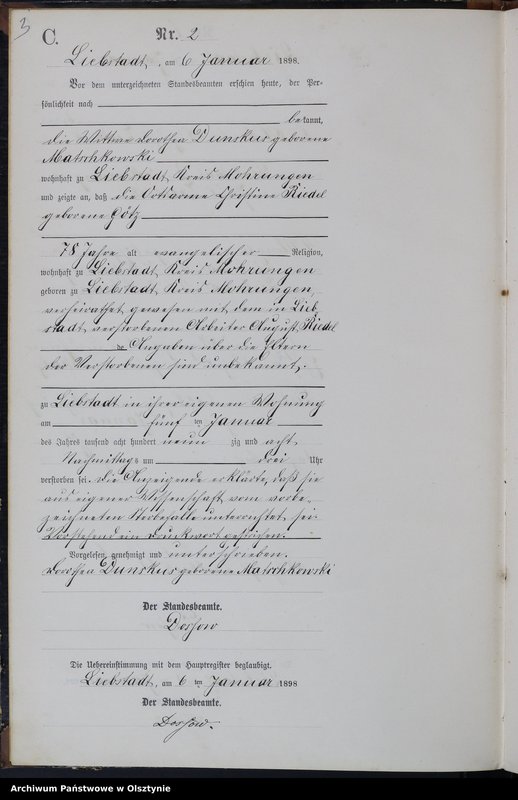 3
C.
Nr. 2
Liebstadt, am 6 Januar 1898.
Vor dem unterzeichneten Standesbeamten erschien heute, der Per-
sönlichkeit nach
bekannt,
die Wittwe Dorothea Dunskus geborene
Matschkowski
wohnhaft zu Liebstadt, Kreis Mohrungen
und zeigte an, daß die Ortsarme Christine Riedel
geborene Götz
78 Jahre alt evangelischer Religion,
wohnhaft zu Liebstadt, Kreis Mohrungen
geboren zu Liebstadt, Kreis Mohrungen,
verheirathet gewesen mit dem in Lieb-
stadt, verstorbenen Arbeiter August Riedel
de Angaben über die Eltern
der Verstorbenen sind unbekannt.
zu Liebstadt in ihrer eigenen Wohnung
am fünf ten Januar
des Jahres tausend acht hundert neun zig und acht
Nachmittags um drei Uhr
verstorben sei. Die Anzeigende erklärte, daß sie
aus eigener Wissenschaft vom vorbe-
zeichneten Sterbefalle unterrichtet sei.
Vorstehend ein Druckwort gestrichen.
Vorgelesen, genehmigt und unterschrieben.
Dorothea Dunskus geborene Matschkowski
Der Standesbeamte.
Dossow
Die Uebereinstimmung mit dem Hauptregister beglaubigt.
Liebstadt, am 6 ten Januar 1898
Der Standesbeamte.
Dossow.
Archiwum Państwowe w Olsztynie